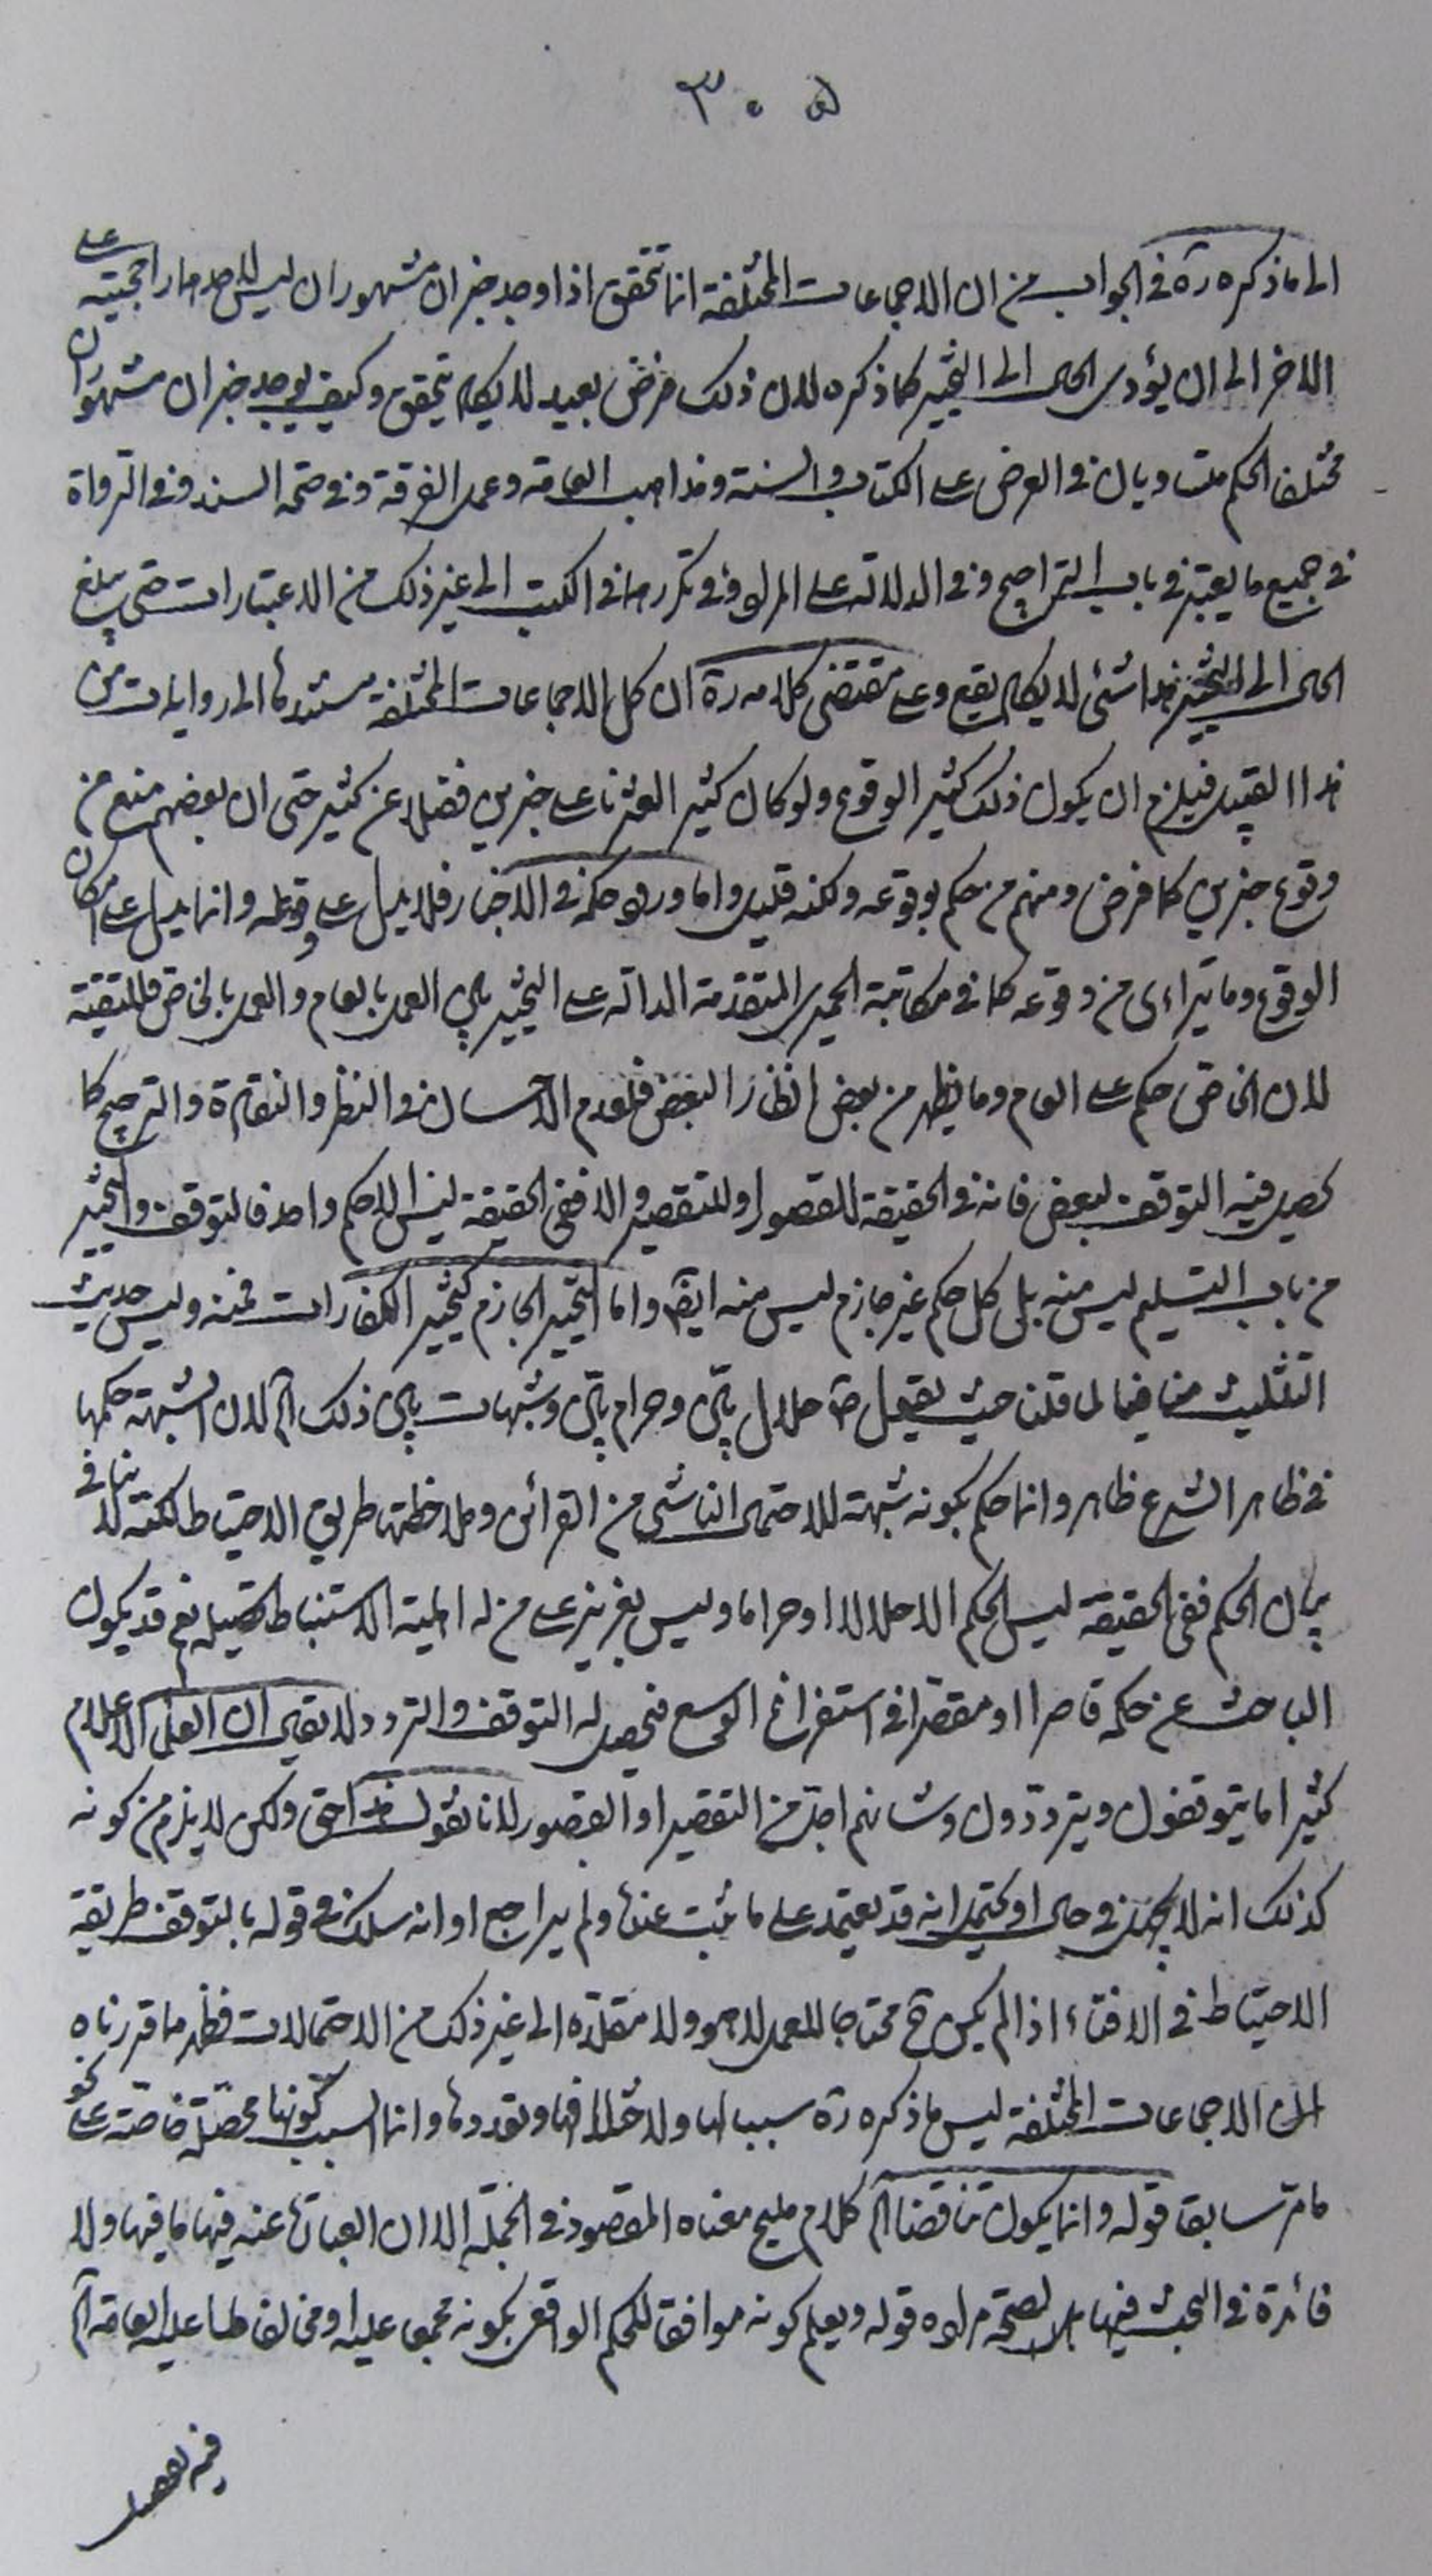 ٣٠٥
الى ما ذكره ره في الجواب من ان الاجماعات المختلفة انما تتحقق اذا وجد خبران مشهوران ليس لاحدهما راجحية على
الاخر الى ان يؤدى الحال الى التخيير كما ذكره لان ذلك فرض بعيد لا يكاد يتحقق وكيف يوجد خبران مشهوران
مختلفا الحكم متساويان في العرض على الكتاب والسنة ومذاهب العامة وعمل الفرقة وفي صحة السند وفي الرواة
في جميع ما يعتبر في باب التراجيح وفي الدلالة على المراد وفي تكررهما في الكتب الى غير ذلك من الاعتبارات حتى يبلغ
الحال الى التخيير هذا شئ لا يكاد يقع وعلى مقتضى كلامه ره ان كل الاجماعات المختلفة مستندها الى روايات من
هذا القبيل فيلزم ان يكون ذلك كثير الوقوع ولو كان كثير العثرنا على خبرين فضلا عن كثير حتى ان بعضهم منع من
وقوع خبرين كما فرض ومنهم من حكم بوقوعه ولكنه قليل واما ورود حكمه في الاخبار فلا يدل على وقوعه وانما يدل على امكان
الوقوع وما يترا‌ءى من وقوعه كما في مكاتبة الحميرى المتقدمة الدالة على التخيير بين العمل بالعام والعمل بالخاص فللتقية
لان الخاص حكم على العام وما يظهر من بعض انظار البعض فلعدم الاحسان في النظر والنقارة والترجيح كما
يحصل فيه التوقف لبعض فانه في الحقيقة للقصور او للتقصير والا ففي الحقيقة ليس الا حكم واحد فالتوقف والتخيير
من باب التسليم ليس منه بلى كل حكم غير جازم ليس منه ايضا واما التخيير الجازم كتخيير الكفارات فمنه وليس حديث
التثليث منافيا لما قلنا حيث يقول ص حلال بيّن وحرام بيّن وشبهات بين ذلك آه لان الشبهة حكمها
في ظاهر الشرع ظاهر وانما حكم بكونه شبهة للاحتمال الناشى من القرائن وملاحظة طريق الاحتياط لكنه لا ينافى
بيان الحكم ففي الحقيقة ليس الحكم الا حلالا او حراما وليس بعزيز على من له اهلية الاستنباط تحصيله نعم قد يكون
الباحث عن حكمه قاصرا او مقصّرا في استفراغ الوسع فيحصل له التوقف والتردد لا يقال ان العلماء الاعلام
كثيرا ما يتوقفون ويترددون وشانهم اجل من التقصير او القصور لانا نقول هذا حق ولكن لا يلزم من كونه
كذلك انه لا يهمل في حال او يحتمل انه قد يعتمد على ما ثبت عنده ولم يراجع او انه سلك في قوله بالتوقف طريقة
الاحتياط في الافتاء اذا لم يكن ح محتاجا للعمل لا هو ولا مقلّده الى غير ذلك من الاحتمالات فظهر ما قررناه
ان الاجماعات المختلفة ليس ما ذكره ره سببا لها ولاختلافها وتعددها وانما السبب كونها محصّلة خاصّة على نحو
ما مرّ سابقا قوله وانما يكون تناقضا آه كلام مليح معناه المقصود في الجملة الا ان العبارة عنه فيها ما فيها ولا
فائدة في البحث فيها لصحة مراده قوله ويعلم كونه موافقا للحكم الواقعى بكونه مجمعا عليه او مخالفا لما عليه العامة آه
فيه